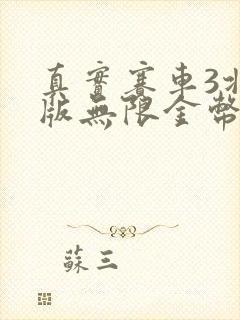 真實賽車3
版無限金幣
蘇三